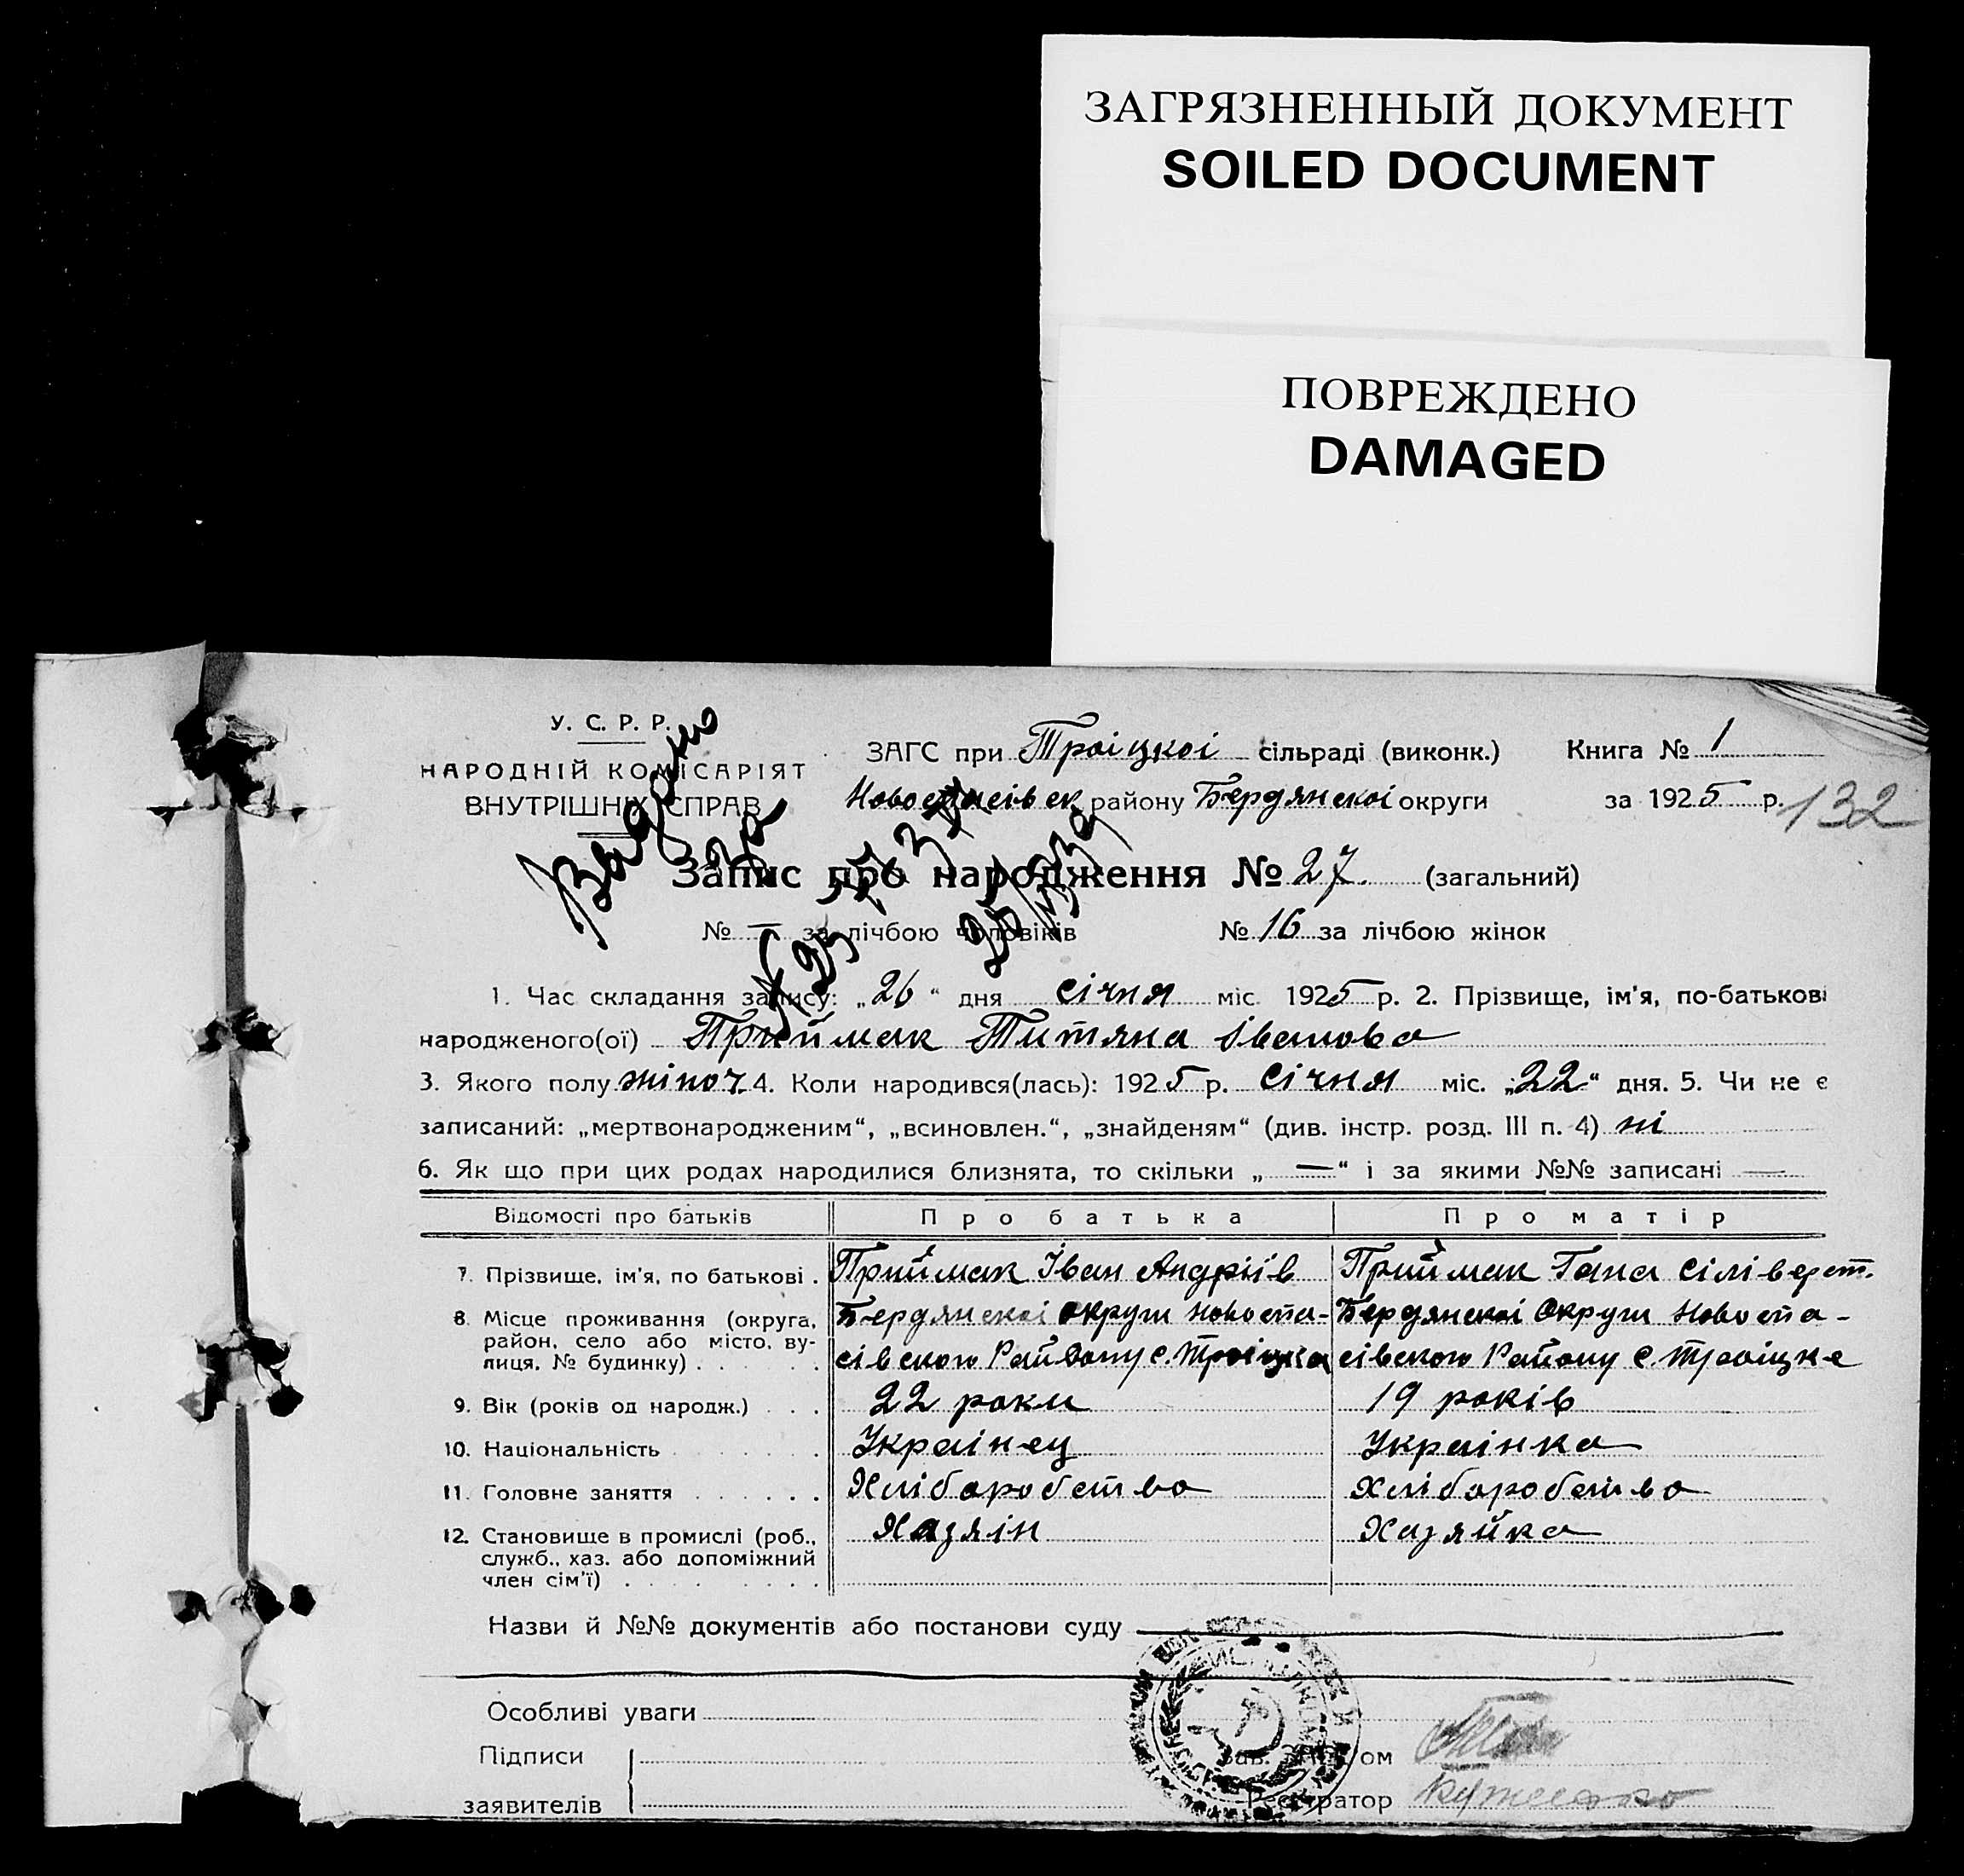 ЗАГРЯЗНЕННЫЙ ДОКУМЕНТ
SOILED DOCUMENT
ПОВРЕЖДЕНО
DAMAGED
У. С. Р. Р.
НАРОДНІЙ КОМІСАРІЯТ
ВНУТРІШНІХ СПРАВ
ЗАГС при Троіцкоі сільраді (виконк.) Книга № 1
району Бердянскоі округи за 1925 р. 132
Видано
Запис про народження № 27 (загальний)
№ — за лічбою чоловіків № 16 за лічбою жінок
1. Час складання запису: „26“ дня січня міс. 1925 р. 2. Прізвище, ім'я, по-батькові
народженого(ої) Приймак Титяна Іванова
3. Якого полу жіноч. 4. Коли народився(лась): 1925 р. Січня міс. „22“ дня. 5. Чи не є
записаний: „мертвонародженим“, „всиновлен.“, „знайденям“ (див. інстр. розд. III п. 4) ні
6. Як що при цих родах народилися близнята, то скільки „—“ і за якими №№ записані —
Відомості про батьків Про батька Про матір
7. Прізвище, ім'я, по батькові . Приймак Іван Андріів Приймак Гана Сіліверст.
8. Місце проживання (округа, район, село або місто, вулиця, № будинку) . . . . . . Бердянскоі округи Новоспа- Бердянскоі Округи Новоспа-
сівского Району с. Троіцка сівского Району с. Троіцке
9. Вік (років од народж.) . . . 22 роки 19 років
10. Національність . . . . . . . Украінец Украінка
11. Головне заняття . . . . . . Хліборобство Хліборобство
12. Становище в промислі (роб., служб., хаз. або допоміжний член сім'ї) . . . . . . . . . Хазяін Хазяйка
Назви й №№ документів або постанови суду
Особливі уваги
Підписи Зав. ЗАГС'ом
заявителів Реєстратор